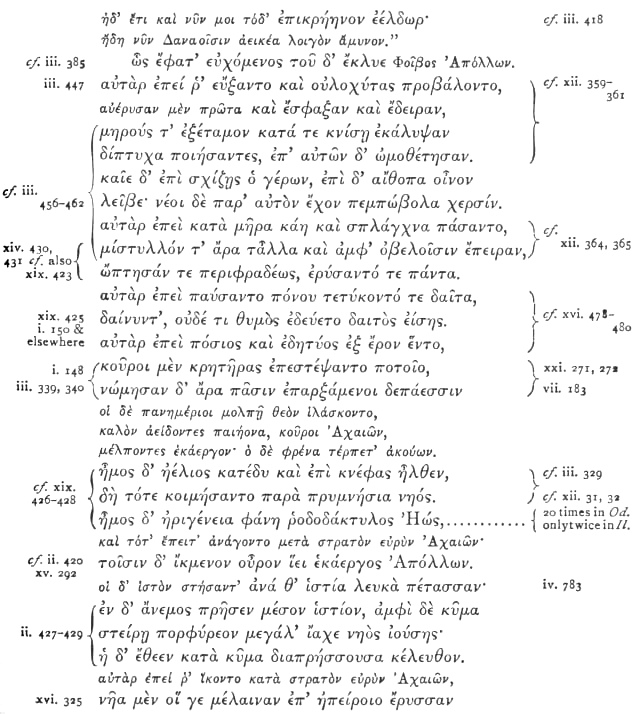 ἠδ' ἔτι καὶ νῦν μοι τόδ' ἐπικρήηνον ἐέλδωρ· cf. iii. 418
ἤδη νῦν Δαναοῖσιν ἀεικέα λοιγὸν ἄμυνον."
cf. iii. 385 ὣς ἔφατ' εὐχόμενος τοῦ δ' ἔκλυε Φοῖβος Ἀπόλλων.
iii. 447 αὐτὰρ ἐπεί ῥ' εὔξαντο καὶ οὐλοχύτας προβάλοντο, cf. xii. 359-
361
αὐέρυσαν μὲν πρῶτα καὶ ἔσφαξαν καὶ ἔδειραν,
μηρούς τ' ἐξέταμον κατά τε κνίσῃ ἐκάλυψαν
δίπτυχα ποιήσαντες, ἐπ' αὐτῶν δ' ὠμοθέτησαν.
καῖε δ' ἐπὶ σχίζῃς ὁ γέρων, ἐπὶ δ' αἴθοπα οἶνον
cf. iii.
456-462 λεῖβε· νέοι δὲ παρ' αὐτὸν ἔχον πεμπώβολα χερσίν.
αὐτὰρ ἐπεὶ κατὰ μῆρα κάη καὶ σπλάγχνα πάσαντο, cf.
xii. 364, 365
xiv. 430,
431 cf. also
xix. 423 μίστυλλόν τ' ἄρα τἆλλα καὶ ἀμφ' ὀβελοῖσιν ἔπειραν,
ὤπτησάν τε περιφραδέως, ἐρύσαντό τε πάντα.
αὐτὰρ ἐπεὶ παύσαντο πόνου τετύκοντό τε δαῖτα,
xix. 425 δαίνυντ', οὐδέ τι θυμὸς ἐδεύετο δαιτὸς ἐίσης. cf. xvi. 478-
480
i. 150 &
elsewhere αὐτὰρ ἐπεὶ πόσιος καὶ ἐδητύος ἐξ ἔρον ἕντο,
i. 148 κοῦροι μὲν κρητῆρας ἐπεστέψαντο ποτοῖο, xxi. 271, 272
iii. 339, 340 νώμησαν δ' ἄρα πᾶσιν ἐπαρξάμενοι δεπάεσσιν vii. 183
οἱ δὲ πανημέριοι μολπῇ θεὸν ἱλάσκοντο,
καλὸν ἀείδοντες παιήονα, κοῦροι Ἀχαιῶν,
μέλποντες ἑκάεργον· ὁ δὲ φρένα τέρπετ' ἀκούων.
cf. xix.
426-428 ἦμος δ' ἠέλιος κατέδυ καὶ ἐπὶ κνέφας ἦλθεν, cf. iii. 329
δὴ τότε κοιμήσαντο παρὰ πρυμνήσια νηός. cf. xii. 31, 32
ἦμος δ' ἠριγένεια φάνη ῥοδοδάκτυλος Ἠώς,............ 20 times in Od.
only twice in Il.
καὶ τότ' ἔπειτ' ἀνάγοντο μετὰ στρατὸν εὐρὺν Ἀχαιῶν·
cf. ii. 420
xv. 292 τοῖσιν δ' ἴκμενον οὖρον ἵει ἑκάεργος Ἀπόλλων.
οἱ δ' ἱστὸν στήσαντ' ἀνά θ' ἱστία λευκὰ πέτασσαν· iv. 783
ἐν δ' ἄνεμος πρῆσεν μέσον ἱστίον, ἀμφὶ δὲ κῦμα
ii. 427-429 στείρῃ πορφύρεον μεγάλ' ἴαχε νηὸς ἰούσης·
ἡ δ' ἔθεεν κατὰ κῦμα διαπρήσσουσα κέλευθον.
αὐτὰρ ἐπεί ῥ' ἵκοντο κατὰ στρατὸν εὐρὺν Ἀχαιῶν,
xvi. 325 νῆα μὲν οἵ γε μέλαιναν ἐπ' ἠπείροιο ἔρυσσαν